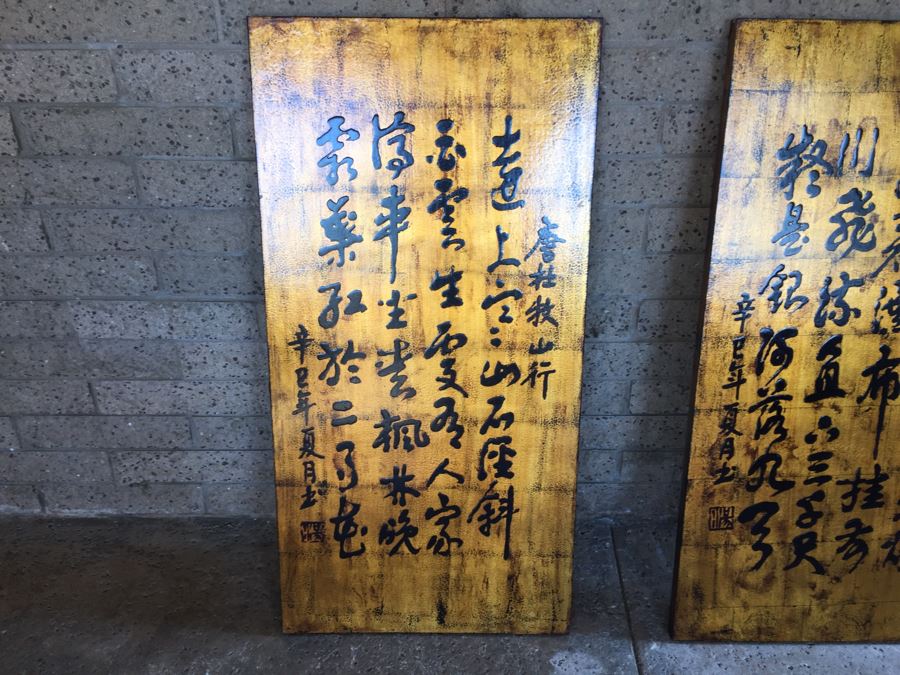 唐杜牧 山行
遠上寒山石徑斜
白雲生處有人家
停車坐愛楓林晚
霜葉紅於二月花
辛巳年夏月書
看瀑布挂前
川飛流直下三千尺
疑是銀河落九天
辛巳年夏月書